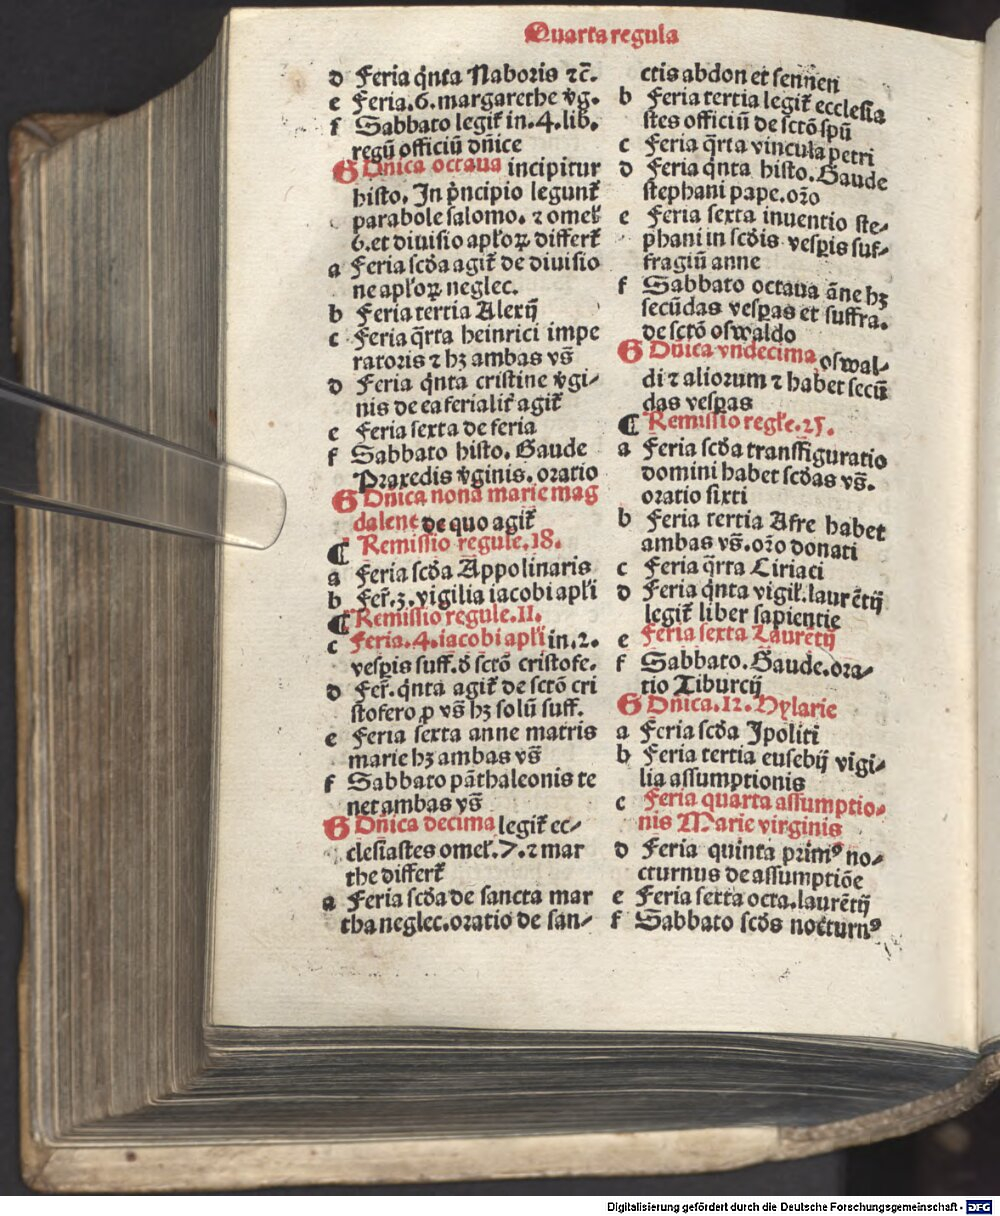 Quarta regula
d Feria q̃nta Naboris ⁊c̃.
e Feria.6. margarethe v̾g.
f Sabbato legit̃ in.4.lib.
regũ officiũ dñice
G Dñica octaua incipitur
histo. In p̃ncipio legunt̃
parabole salomo. ⁊ omeł
6.et diuisio apłoꝝ differt̃
a Feria scđa agit̃ de diuisio
ne apłoꝝ neglec.
b Feria tertia Alexij
c Feria q̃rta heinrici impe
ratoris ⁊ hꝫ ambas vs̃
d Feria q̃nta cristine v̾gi-
nis de ea ferialit̾ agit̃
e Feria sexta de feria
f Sabbato histo. Gaude
Praxedis v̾ginis. oratio
G Dñica nona marie mag
dalene de quo agit̃
¶ Remissio regule.18.
a Feria scđa Appolinaris
b Fer̃.3. vigilia iacobi apłi
¶ Remissio regule.11.
c Feria.4.iacobi apłi in.2.
vesp̱is suff.đ sctõ cristofe.
d Fer̃. q̃nta agit̃ de sctõ cri
stofero ꝓ vs̃ hꝫ solũ suff.
e Feria sexta anne matris
marie hꝫ ambas vs̃
f Sabbato pãthaleonis te
net ambas vs̃
G Dñica decima legit̃ ec-
clesiastes omeł.7.⁊ mar
the differt̃
a Feria scđa de sancta mar
tha neglec.oratio de san-
ctis abdon et sennen
b Feria tertia legit̃ ecclesia
stes officiũ de sctõ spũ
c Feria q̃rta vincula petri
d Feria q̃nta histo. Gaude
stephani pape.oꝛo
e Feria sexta inuentio ste-
phani in scđis vesp̱is suf-
fragiũ anne
f Sabbato octaua ãne hꝫ
secũdas vesp̱as et suffra.
de sctõ oswaldo
G Dñica vndecima oswal-
di ⁊ aliorum ⁊ habet secũ
das vesp̱as
¶ Remissio regłe.25.
a Feria scđa transfiguratio
domini habet scđas vs̃.
oratio sixti
b Feria tertia Afre habet
ambas vs̃.oꝛo donati
c Feria q̃rta Ciriaci
d Feria q̃nta vigił.laurẽtij
legit̃ liber sapientie
e Feria sexta Laurẽtij
f Sabbato. Gaude.ora-
tio Tiburcij
G Dñica.12. Hylarie
a Feria scđa Ipoliti
b Feria tertia eusebij vigi-
lia assumptionis
c Feria quarta assumptio-
nis Marie virginis
d Feria quinta primꝰ no-
cturnus de assumptiõe
e Feria sexta octa.laurẽtij
f Sabbato scđs nocturnꝰ
Digitalisierung gefördert durch die Deutsche Forschungsgemeinschaft - DFG